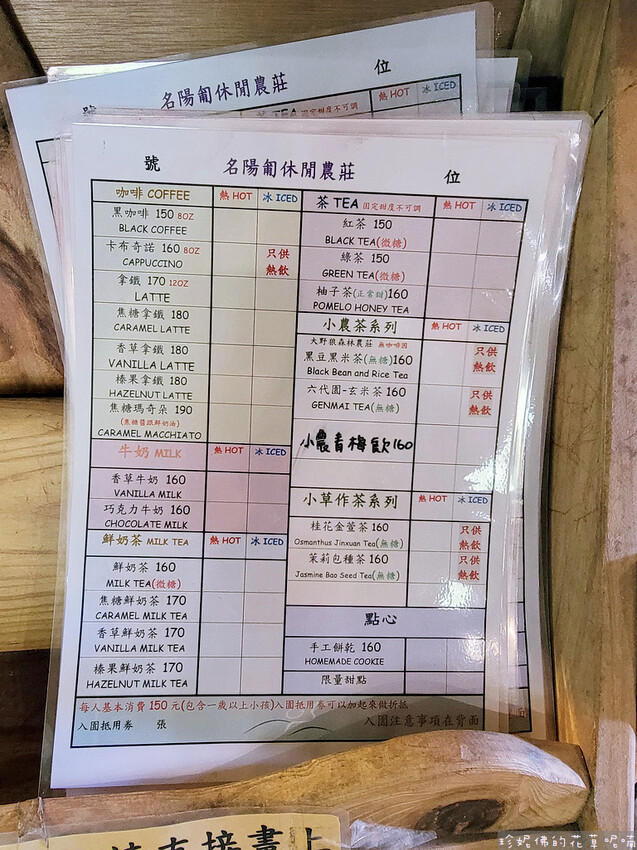 名陽匍休閒農莊 位
號 TEA 固定甜度不可調 熱 HOT 冰 ICED
號 名陽匍休閒農莊 位
咖啡 COFFEE 熱 HOT 冰 ICED
黑咖啡 150 8OZ
BLACK COFFEE
卡布奇諾 160 8OZ 只供
CAPPUCCINO 熱飲
拿鐵 170 12OZ
LATTE
焦糖拿鐵 180
CARAMEL LATTE
香草拿鐵 180
VANILLA LATTE
榛果拿鐵 180
HAZELNUT LATTE
焦糖瑪奇朵 190
(焦糖醬跟鮮奶油)
CARAMEL MACCHIATO
牛奶 MILK 熱 HOT 冰 ICED
香草牛奶 160
VANILLA MILK
巧克力牛奶 160
CHOCOLATE MILK
鮮奶茶 MILK TEA 熱 HOT 冰 ICED
鮮奶茶 160
MILK TEA(微糖)
焦糖鮮奶茶 170
CARAMEL MILK TEA
香草鮮奶茶 170
VANILLA MILK TEA
榛果鮮奶茶 170
HAZELNUT MILK TEA
茶 TEA 固定甜度不可調 熱 HOT 冰 ICED
紅茶 150
BLACK TEA(微糖)
綠茶 150
GREEN TEA(微糖)
柚子茶(正常甜)160
POMELO HONEY TEA
小農茶系列 熱 HOT 冰 ICED
大野狼森林農莊 無咖啡因 只供
黑豆黑米茶(無糖)160 熱飲
Black Bean and Rice Tea
六代園-玄米茶 160 只供
GENMAI TEA(無糖) 熱飲
小農青梅飲160
小草作茶系列 熱 HOT 冰 ICED
桂花金萱茶 160 只供
Osmanthus Jinxuan Tea(無糖) 熱飲
茉莉包種茶 160 只供
Jasmine Bao Seed Tea(無糖) 熱飲
點心
手工餅乾 160
HOMEMADE COOKIE
限量甜點
每人基本消費 150 元(包含一歲以上小孩)入園抵用券可以加起來做折抵
入園抵用券 張 入園注意事項在背面
請直接畫上
珍妮佛的花草呢喃